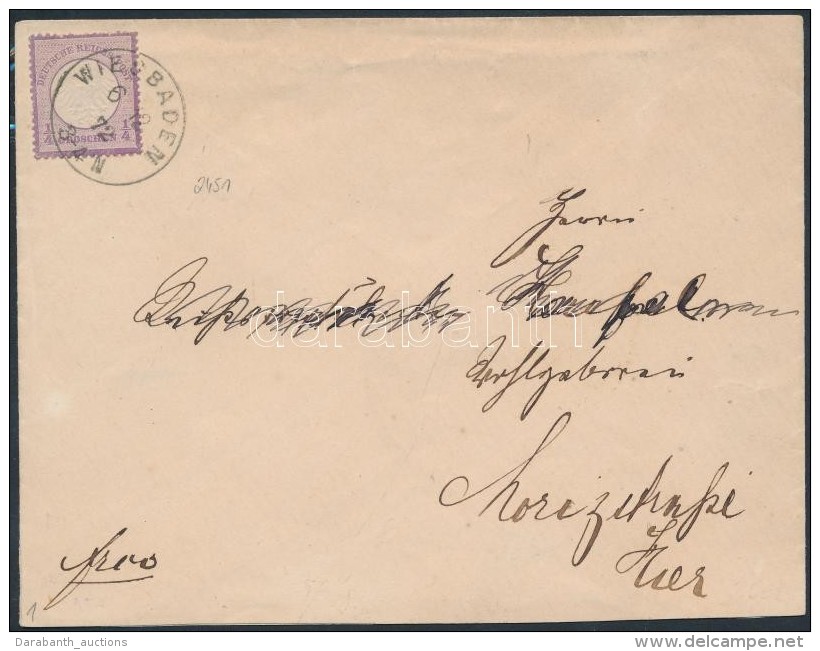 DEUTSCHE REICHS-POST
1/4 GROSCHEN 1/4
WIESBADEN
6 12
72
2451
Herrn
Wohlgeboren
Morizstraße
Hier
frco
1
darabanth
Darabanth_auctions
delcampe.net